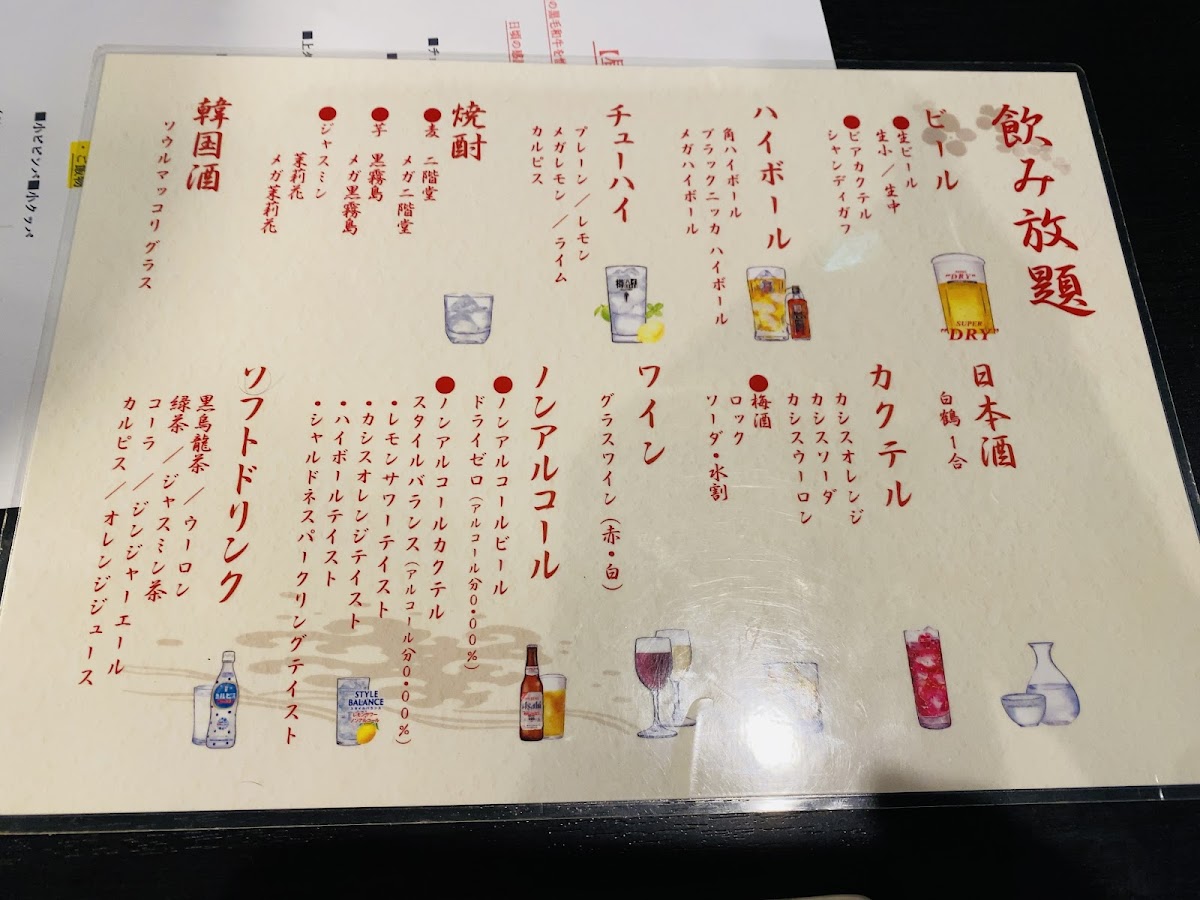 飲み放題
ビール
●生ビール
生小／生中
●ビアカクテル
シャンディガフ
ハイボール
角ハイボール
ブラックニッカ ハイボール
メガハイボール
チューハイ
プレーン／レモン
メガレモン／ライム
カルピス
焼酎
●麦 二階堂
メガ二階堂
●芋 黒霧島
メガ黒霧島
●ジャスミン
茉莉花
メガ茉莉花
韓国酒
ソウルマッコリグラス
日本酒
白鶴1合
カクテル
カシスオレンジ
カシスソーダ
カシスウーロン
●梅酒
ロック
ソーダ・水割
ワイン
グラスワイン（赤・白）
ノンアルコール
●ノンアルコールビール
ドライゼロ（アルコール分0.00%）
●ノンアルコールカクテル
スタイルバランス（アルコール分0.00%）
・レモンサワーテイスト
・カシスオレンジテイスト
・ハイボールテイスト
・シャルドネスパークリングテイスト
ソフトドリンク
黒烏龍茶／ウーロン
緑茶／ジャスミン茶
コーラ／ジンジャーエール
カルピス／オレンジジュース
"DRY"
SUPER
"DRY"
STYLE
BALANCE
レモンサワー
ノンアルコール
Asahi
・ご飯物
■小ビビンバ■小クッパ